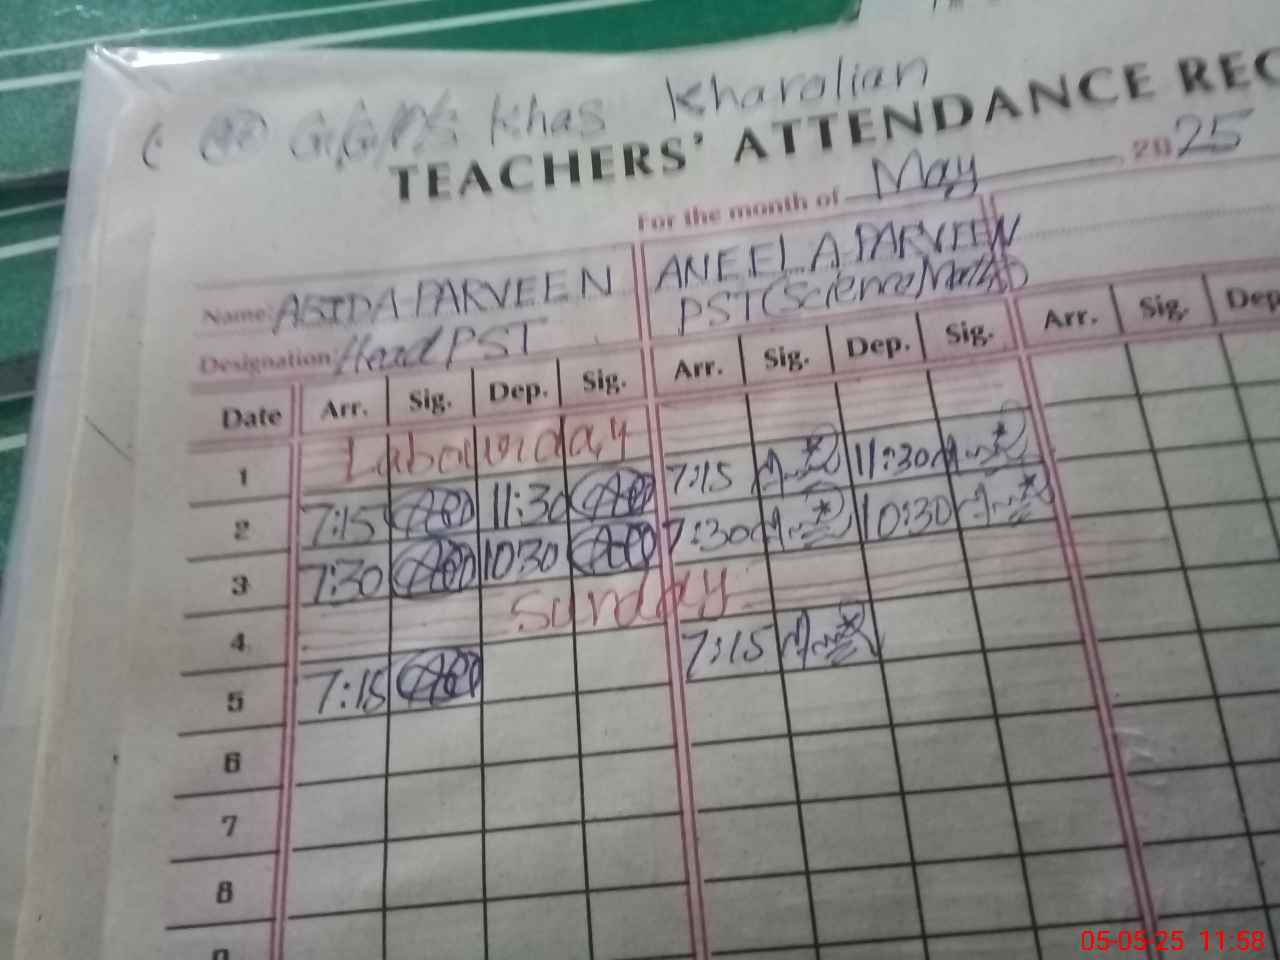 Khas Kharalian
TEACHERS' ATTENDANCE REC
For the month of May 2025
Name: ABIDA PARVEEN ANEELA PARVEEN
Designation Head PST PST (Science Math)
Date Arr. Sig. Dep. Sig. Arr. Sig. Dep. Sig. Arr. Sig. Dep
1 Labour day
2 7:15 11:30 7:15 11:30
3 7:30 10:30 7:30 10:30
4 Sunday
5 7:15 7:15
6
7
8
05-05-25 11:58